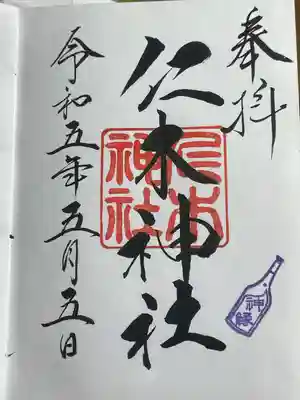 奉拝
仁木神社
令和五年五月五日
仁木
神社
神